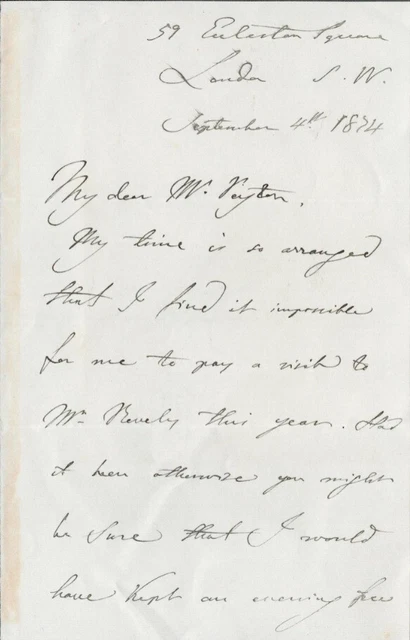 59 Eccleston Square
London S. W.
September 4th 1874
My dear Mr. Peyton,
My time is so arranged
that I find it impossible
for me to pay a visit to
Mrs Revely this year. Had
it been otherwise you might
be sure that I would
have kept an evening free